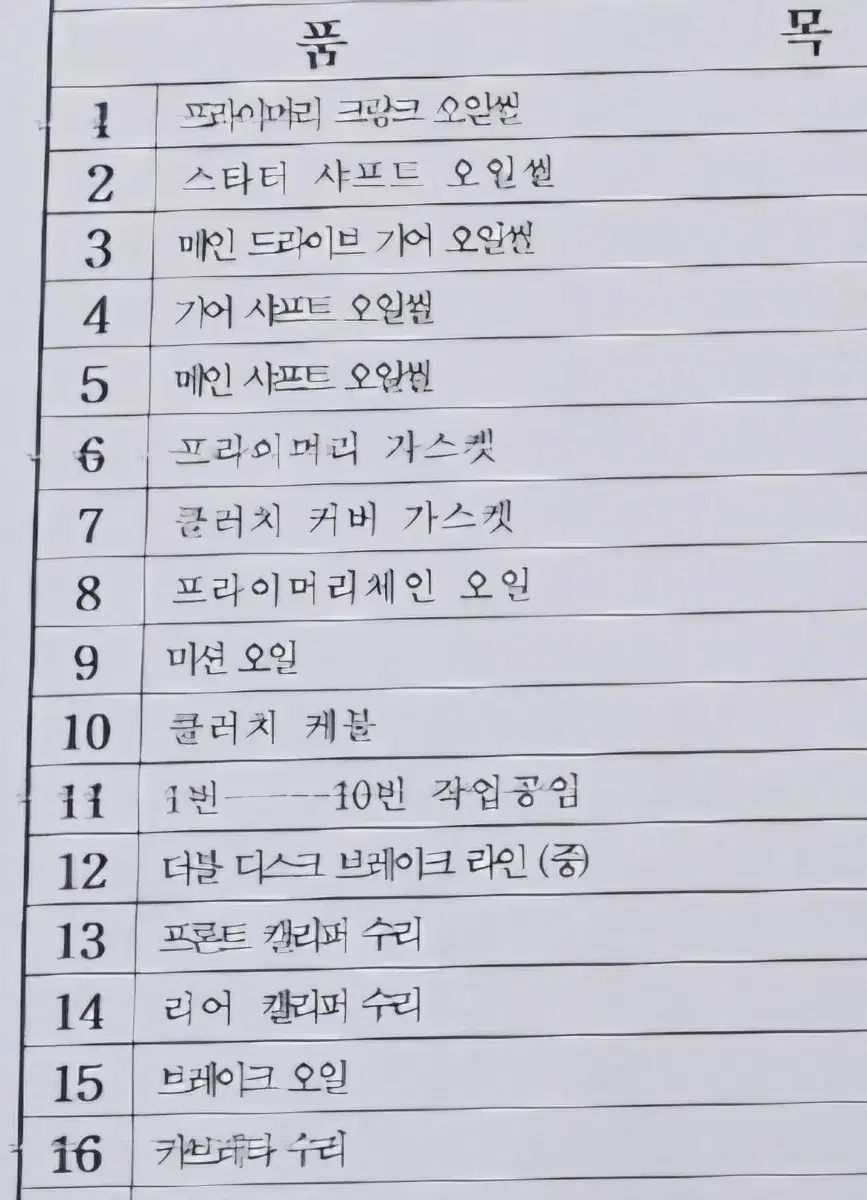 품 목
1 프라이머리 크랑크 오일씰
2 스타터 샤프트 오일씰
3 메인 드라이브 기어 오일씰
4 기어 샤프트 오일씰
5 메인 샤프트 오일씰
6 프라이머리 가스켓
7 클러치 커버 가스켓
8 프라이머리체인 오일
9 미션 오일
10 클러치 케블
11 1번-----10번 작업공임
12 더블 디스크 브레이크 라인 (중)
13 프론트 캘리퍼 수리
14 리어 캘리퍼 수리
15 브레이크 오일
16 카브레타 수리